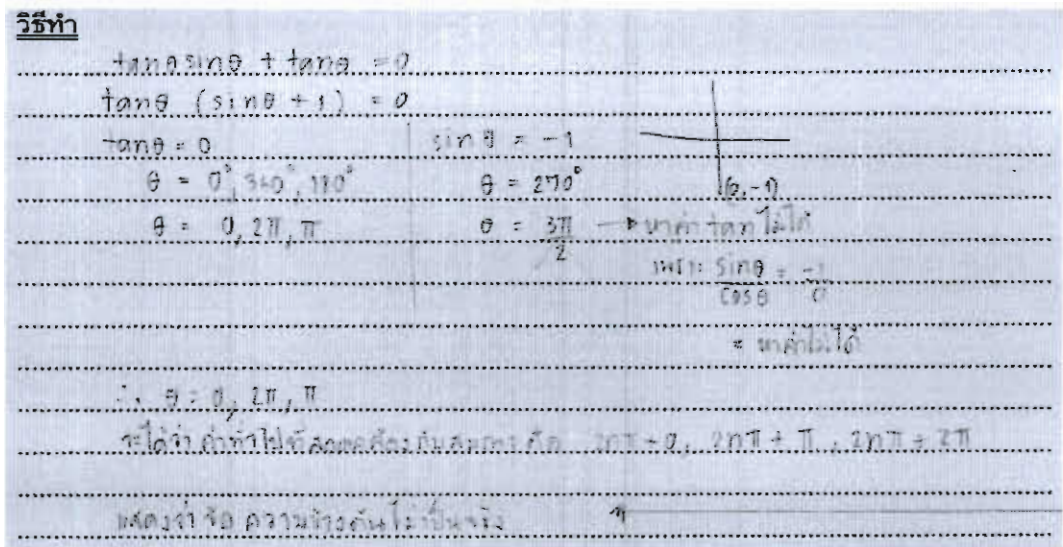 วิธีทำ
tanθsinθ + tanθ = 0
tanθ (sinθ + 1) = 0
tanθ = 0
θ = 0°, 360°, 180°
θ = 0, 2π, π
sinθ = -1
θ = 270°
θ = 3π/2 → หาค่า tan ไม่ได้
(0,-1)
เพราะ sinθ/cosθ = -1/0
= หาค่าไม่ได้
∴ θ = 0, 2π, π
จะได้ว่า ค่าทั่วไปที่สอดคล้องกับสมการ คือ 2nπ + 0, 2nπ + π, 2nπ + 2π
แสดงว่า ข้อความข้างต้นไม่เป็นจริง